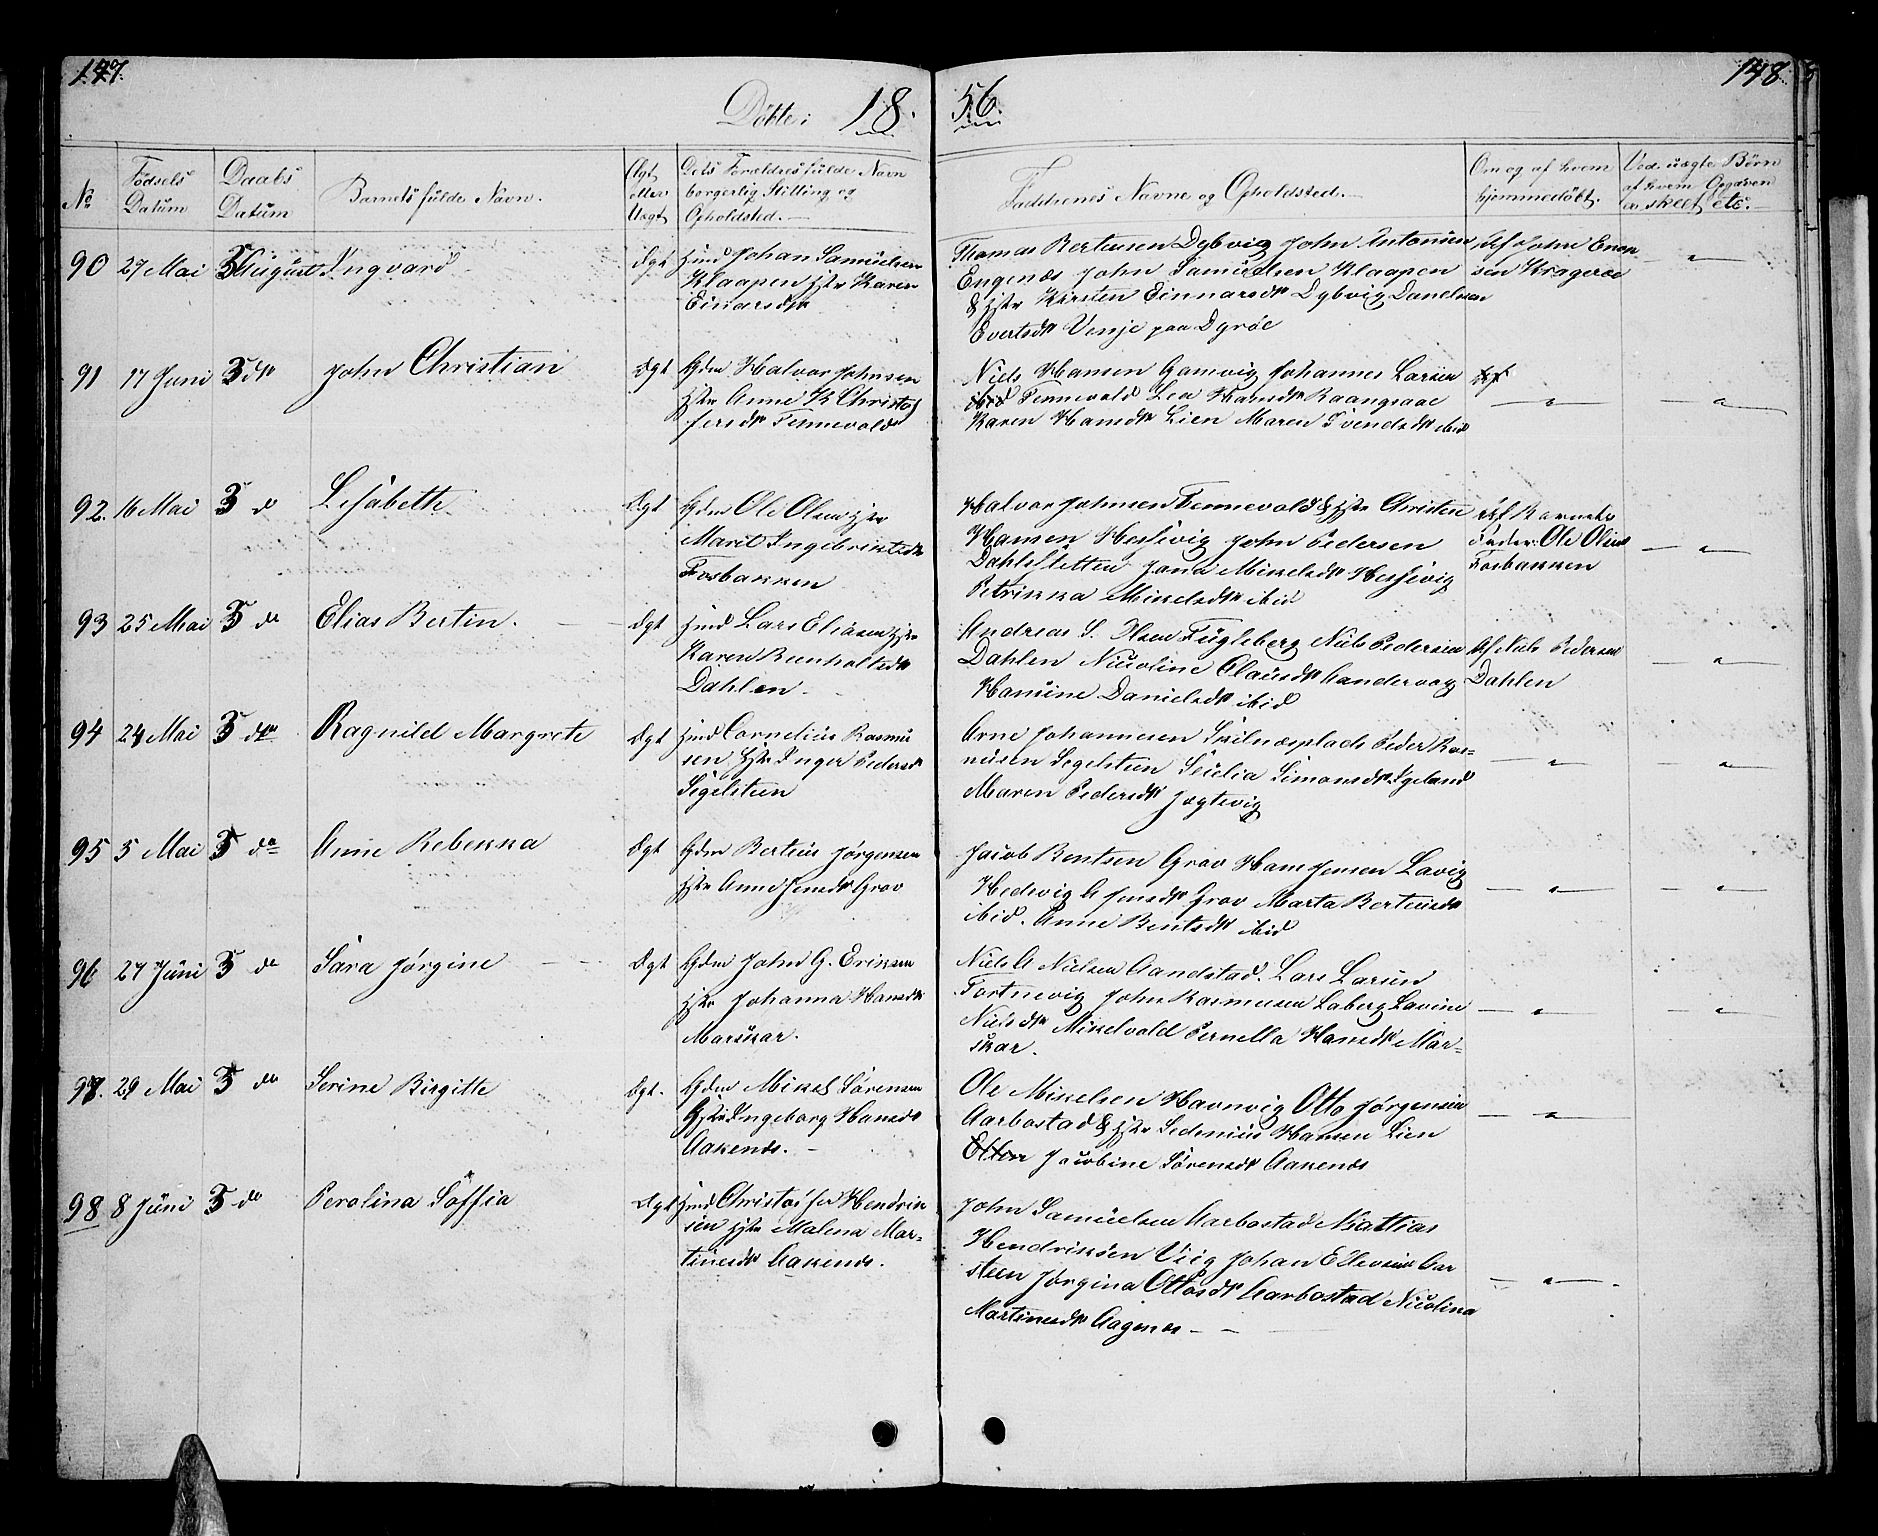 147.
148
Døbte: 18
56.
No
Fødsels Datum
Daabs Datum
Barnets fulde Navn.
Ægt eller Uægt
Dets Forældres fulde Navn
borgerlig Stilling og
Opholdsted.
Faddrenes Navne og Opholdsted.
Om og af hvem
hjemmedøbt.
Ved uægte Børn
af hvem Opgaven
er skeet etc.
90 27 Mai 3 August Ingvard
Ægt Jnd Johan Samuelsen
Klaapen Hstr Karen
Einarsdtr
Thomas Bertusen Dybvig John Antonsen
Engenæs John Samuelsen Klaapen
& Hstr Kirsten Einnarsdtr Dybvig Danelsen
Evertsdtr Vinje paa Dyrøe
Af John Enok
sen Kragerøe
91 17 Juni 3 dto John Christian
Ægt Gdm Halvor Johnsen
Hstr Anne K Christof
fersdtr Tennevold
Niels Hansen Gamvig Johannes Larsen
Tennevold Lea Hansdtr Kaangsaae
Karen Hansdtr Lien Maren Svendsdtr ibid
92. 16 Mai 3 d Lisabeth
Ægt Gdm Ole Olsen Hstr
Marit Ingebrigtsdtr
Fosbakken
Halvor Johnsen Tennevold & Hstr Christen
Hansen Hessevig John Pedersen
Dahlsletten Jana Mikelsdtr Hessevig
Petrikka Mikelsdtr ibid
Af Barnets
Fader: Ole Olsen
Fosbakken
93 25 Mai 3 do Elias Bertin.
Ægt Jnd Lars Eliasen Hstr
Karen Bernholtsdtr
Dahlen.
Andreas S. Olsen Fugleberg Niels Pedersen
Dahlen Nicoline Clausdtr Sandervog
Hansine Danielsdtr ibid
Af Niels Pedersen
Dahlen
94 24 Mai 3 do Ragnild Margrete
Ægt Jnd Cornelius Rasmu
sen Hstr Inger Pedersdtr
Segelsteen
Arne Johannesen Skilnæsplads Peder Ras-
musen Segelsteen Sicelia Simonsdtr Ageland
Maren Pedersdtr Jægtevig
95 5 Mai 3 do Anne Rebekka
Ægt Gdm Berteus Jørgensen
Hstr Anne Jensdtr Grov
Jacob Bentsen Grov Hans Jensen Lavig
Hedevig A Jensdtr Grov Marta Berteusdtr
ibid. Anne Bentsdtr ibid
96 27 Juni 3 do Sara Jørgine
Ægt Gdm John G. Eriksen
Hstr Johanna Hansdtr
Marskar.
Niels A Nielsen Aandstad. Lars Larsen
Fortnevig John Rasmusen Laberg Lavine
Nielsdtr Mikelvold Pernella Hansdtr Mar-
skar.
97. 29 Mai 3 do Serine Birgitte
Ægt. Gdm Mikel Sørensen
Hstr Ingeborg Hansdtr
Aakenes.
Ole Mikelsen Havnvig Otto Jørgensen
Aarbostad & Hstr Sedenius Hansen Lien
Jacobine Sørensdtr Aakenes
98 8 Juni 3 do Perolina Soffia
Ægt Jnd Christofer Hendrik
sen Hstr Malena Mar-
tinusdtr Aakenes.
John Samuelsen Aarbostad Matias
Hendriksen Viig Johan Ellevsen Aar
steen Jørgina Ottosdtr Aarbostad Nicolina
Martinusdtr Aagenes